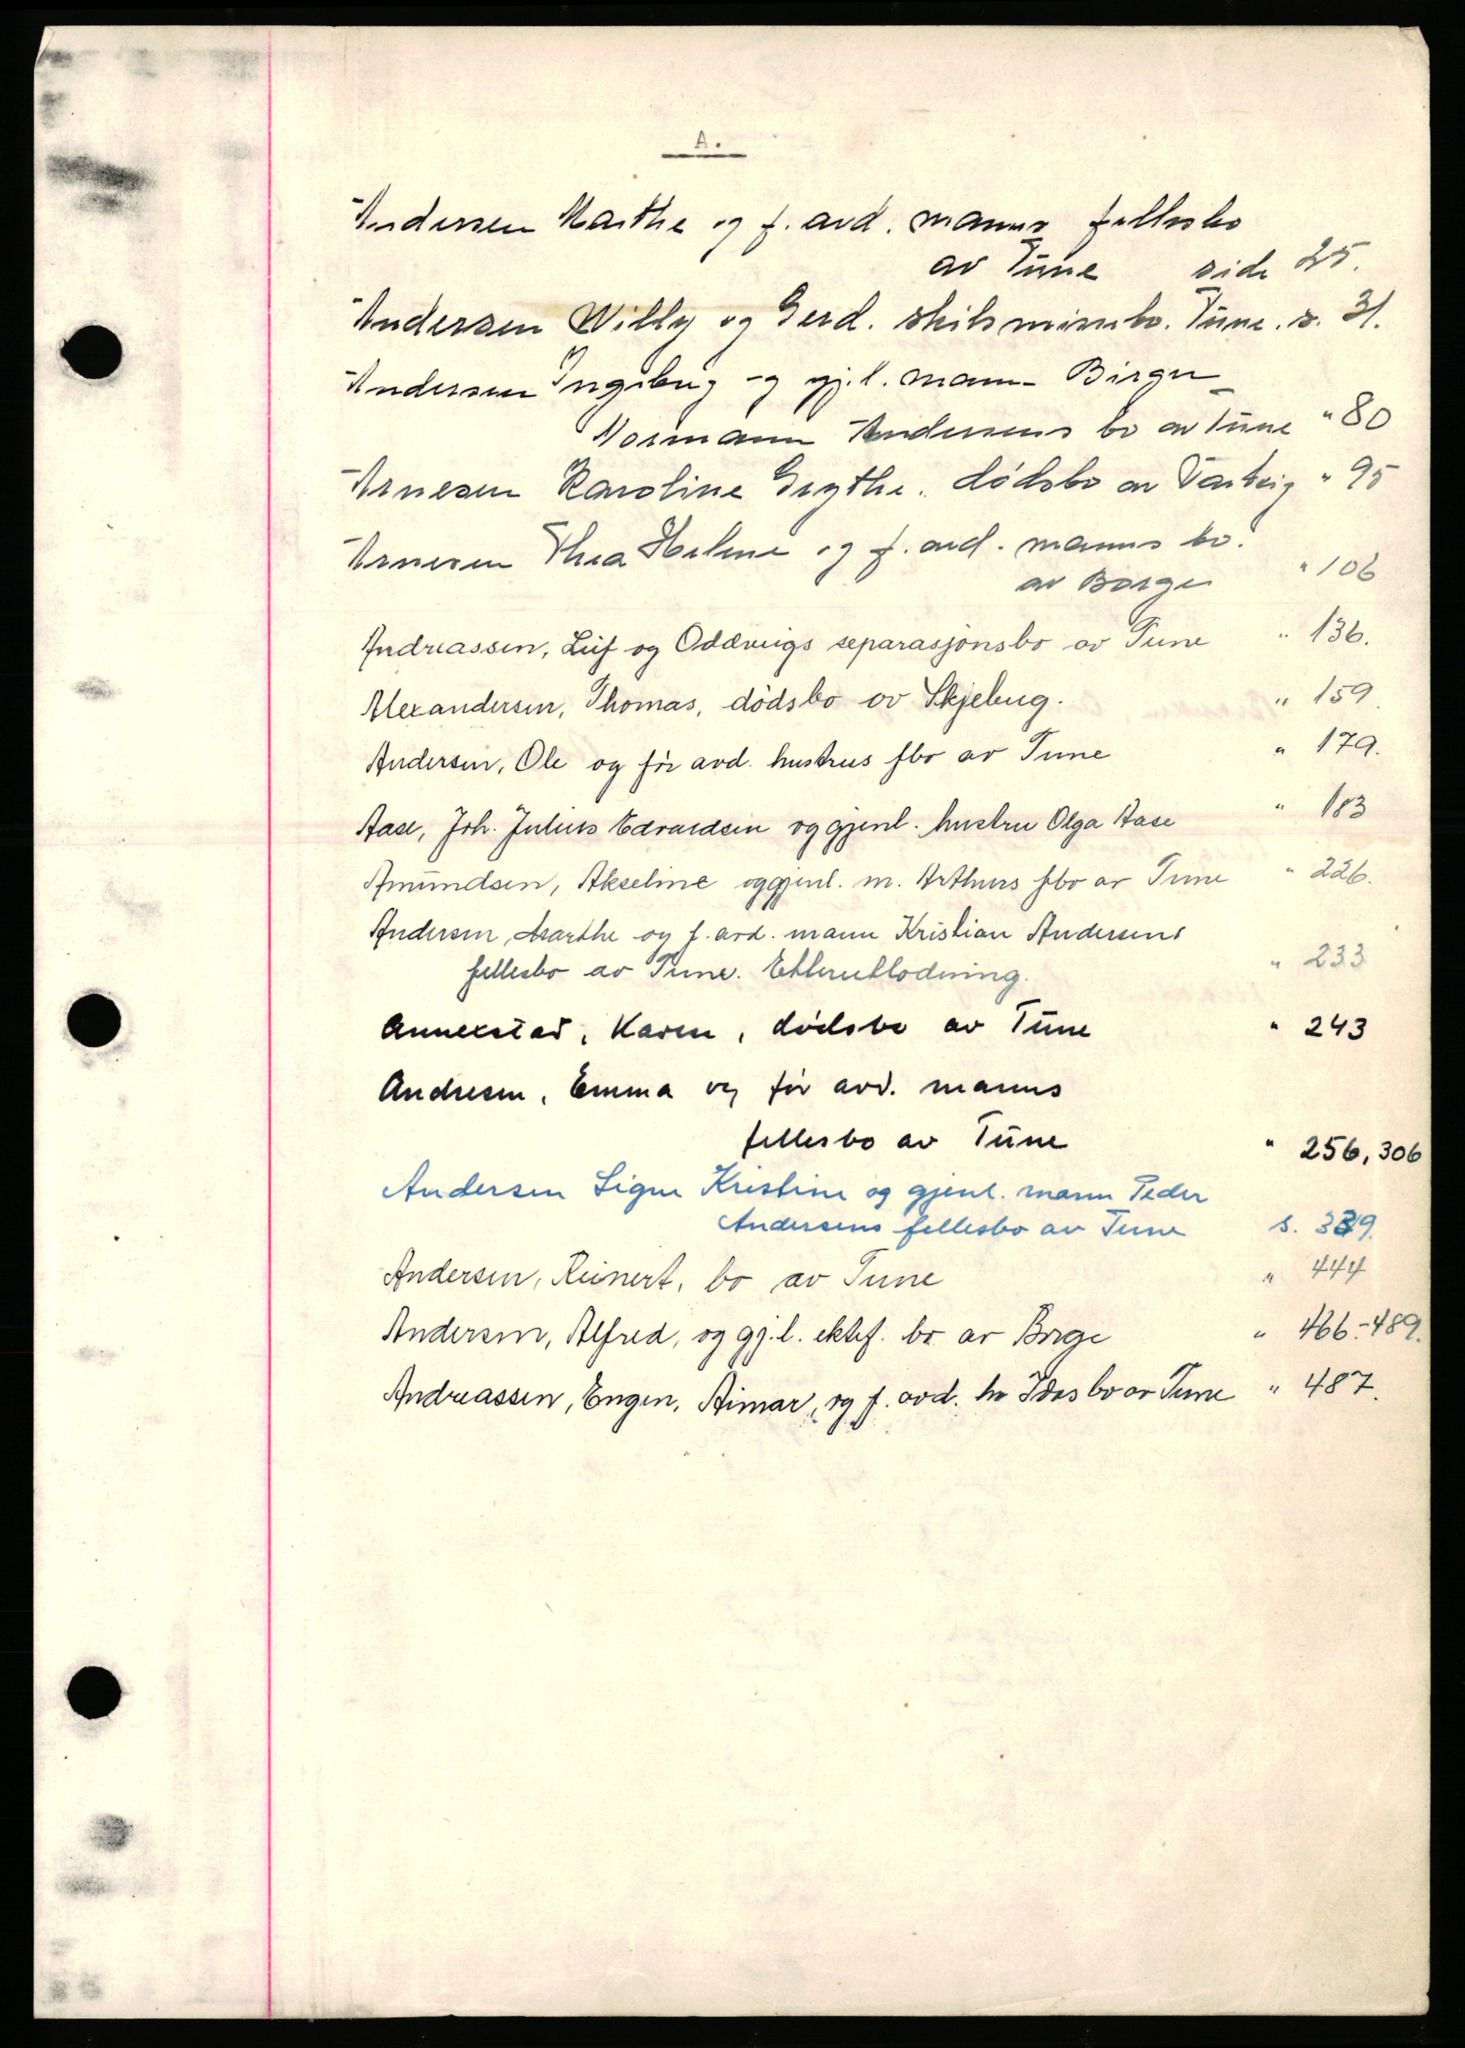 A.
Andersen Marthe og f. avd. manns fellesbo
av Tune side 25.
Andersen Willy og Gerd. skilsmissebo. Tune. s. 31.
Andersen Ingeborg og gj.l. mann Birger
Normann Andersens bo av Tune " 80
Arnesen Karoline Grythe. dødsbo av Varteig " 95
Arnesen Thea Helene og f. avd. manns bo.
av Borge " 106
Andreassen, Leif og Oddveigs separasjonsbo av Tune " 136.
Alexandersen, Thomas, dødsbo av Skjeberg. " 159.
Andersen, Ole og før avd. hustrus fbo av Tune " 179.
Aase, Joh. Julius Edvardsen og gjenl. hustru Olga Aase " 183
Amundsen, Akseline og gjenl. m. Arthurs fbo av Tune " 226.
Andersen, Marthe og f. avd. mann Kristian Andersens
fellesbo av Tune. Etterutlodning. " 233
Annekstad, Karen, dødsbo av Tune " 243
Andresen, Emma og før avd. manns
fellesbo av Tune " 256, 306
Andersen Signe Kristine og gjenl. mann Peder
Andersens fellesbo av Tune s. 339.
Andersen, Reinert, bo av Tune " 444
Andersen, Alfred, og gj.l. ektef. bo av Borge " 466.-489.
Andreassen, Engen, Aimar, og f. avd. h. Idas bo av Tune " 487.